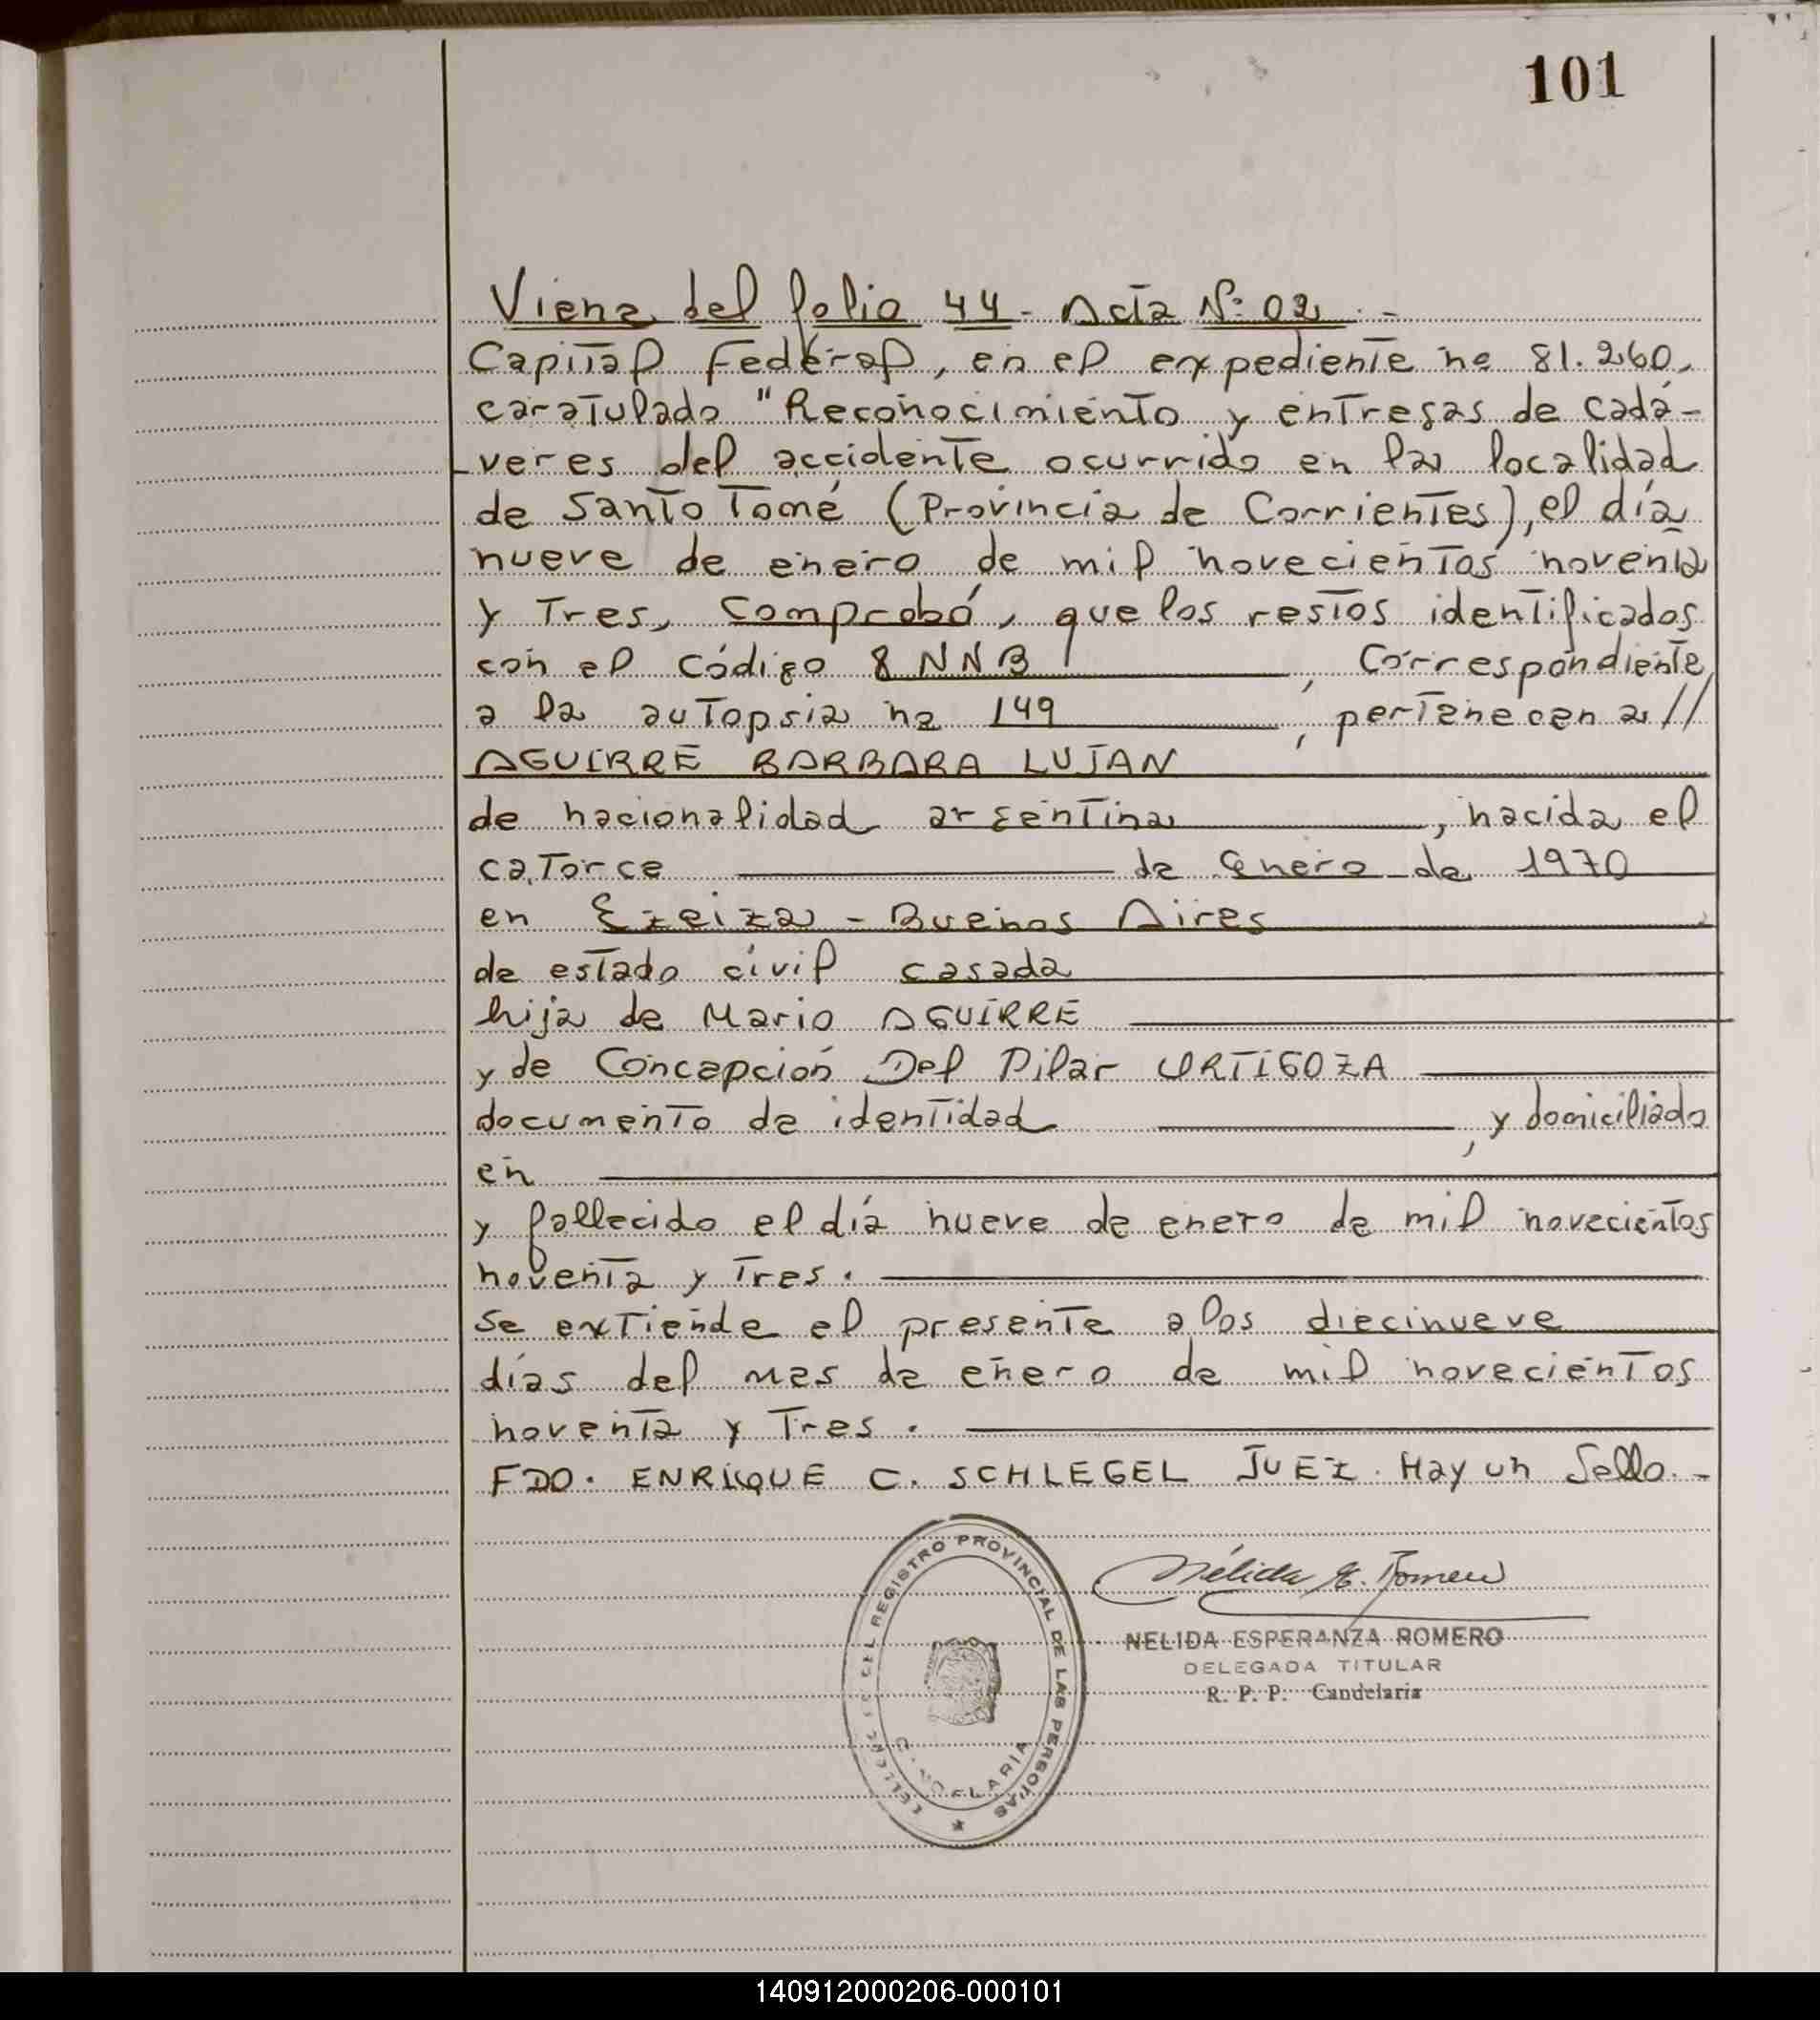 101
Viene del folio 44 - Acta Nº: 02. -
Capital Federal, en el expediente no 81.260,
caratulado "Reconocimiento y entregas de cadá-
veres del accidente ocurrido en la localidad
de Santo Tomé (Provincia de Corrientes), el día
nueve de enero de mil novecientos noventa
y Tres, comprobó, que los restos identificados
con el código 8 NNB, Correspondiente
a la autopsia no 149, pertenecen a //
AGUIRRE BARBARA LUJAN
de nacionalidad argentina, nacida el
catorce de Enero de 1970
en Ezeiza - Buenos Aires
de estado civil casada
hija de Mario AGUIRRE
y de Concepción Del Pilar URTIGOZA
documento de identidad, y domiciliado
en
y fallecido el día nueve de enero de mil novecientos
noventa y Tres.
Se extiende el presente a los diecinueve
días del mes de enero de mil novecientos
noventa y Tres.
FDO. ENRIQUE C. SCHLEGEL JUEZ. Hay un Sello. -
DEL REGISTRO PROVINCIAL DE LAS PERSONAS
CANDELARIA
Nélida E. Romero
NELIDA ESPERANZA ROMERO
DELEGADA TITULAR
R. P. P. Candelaria
140912000206-000101